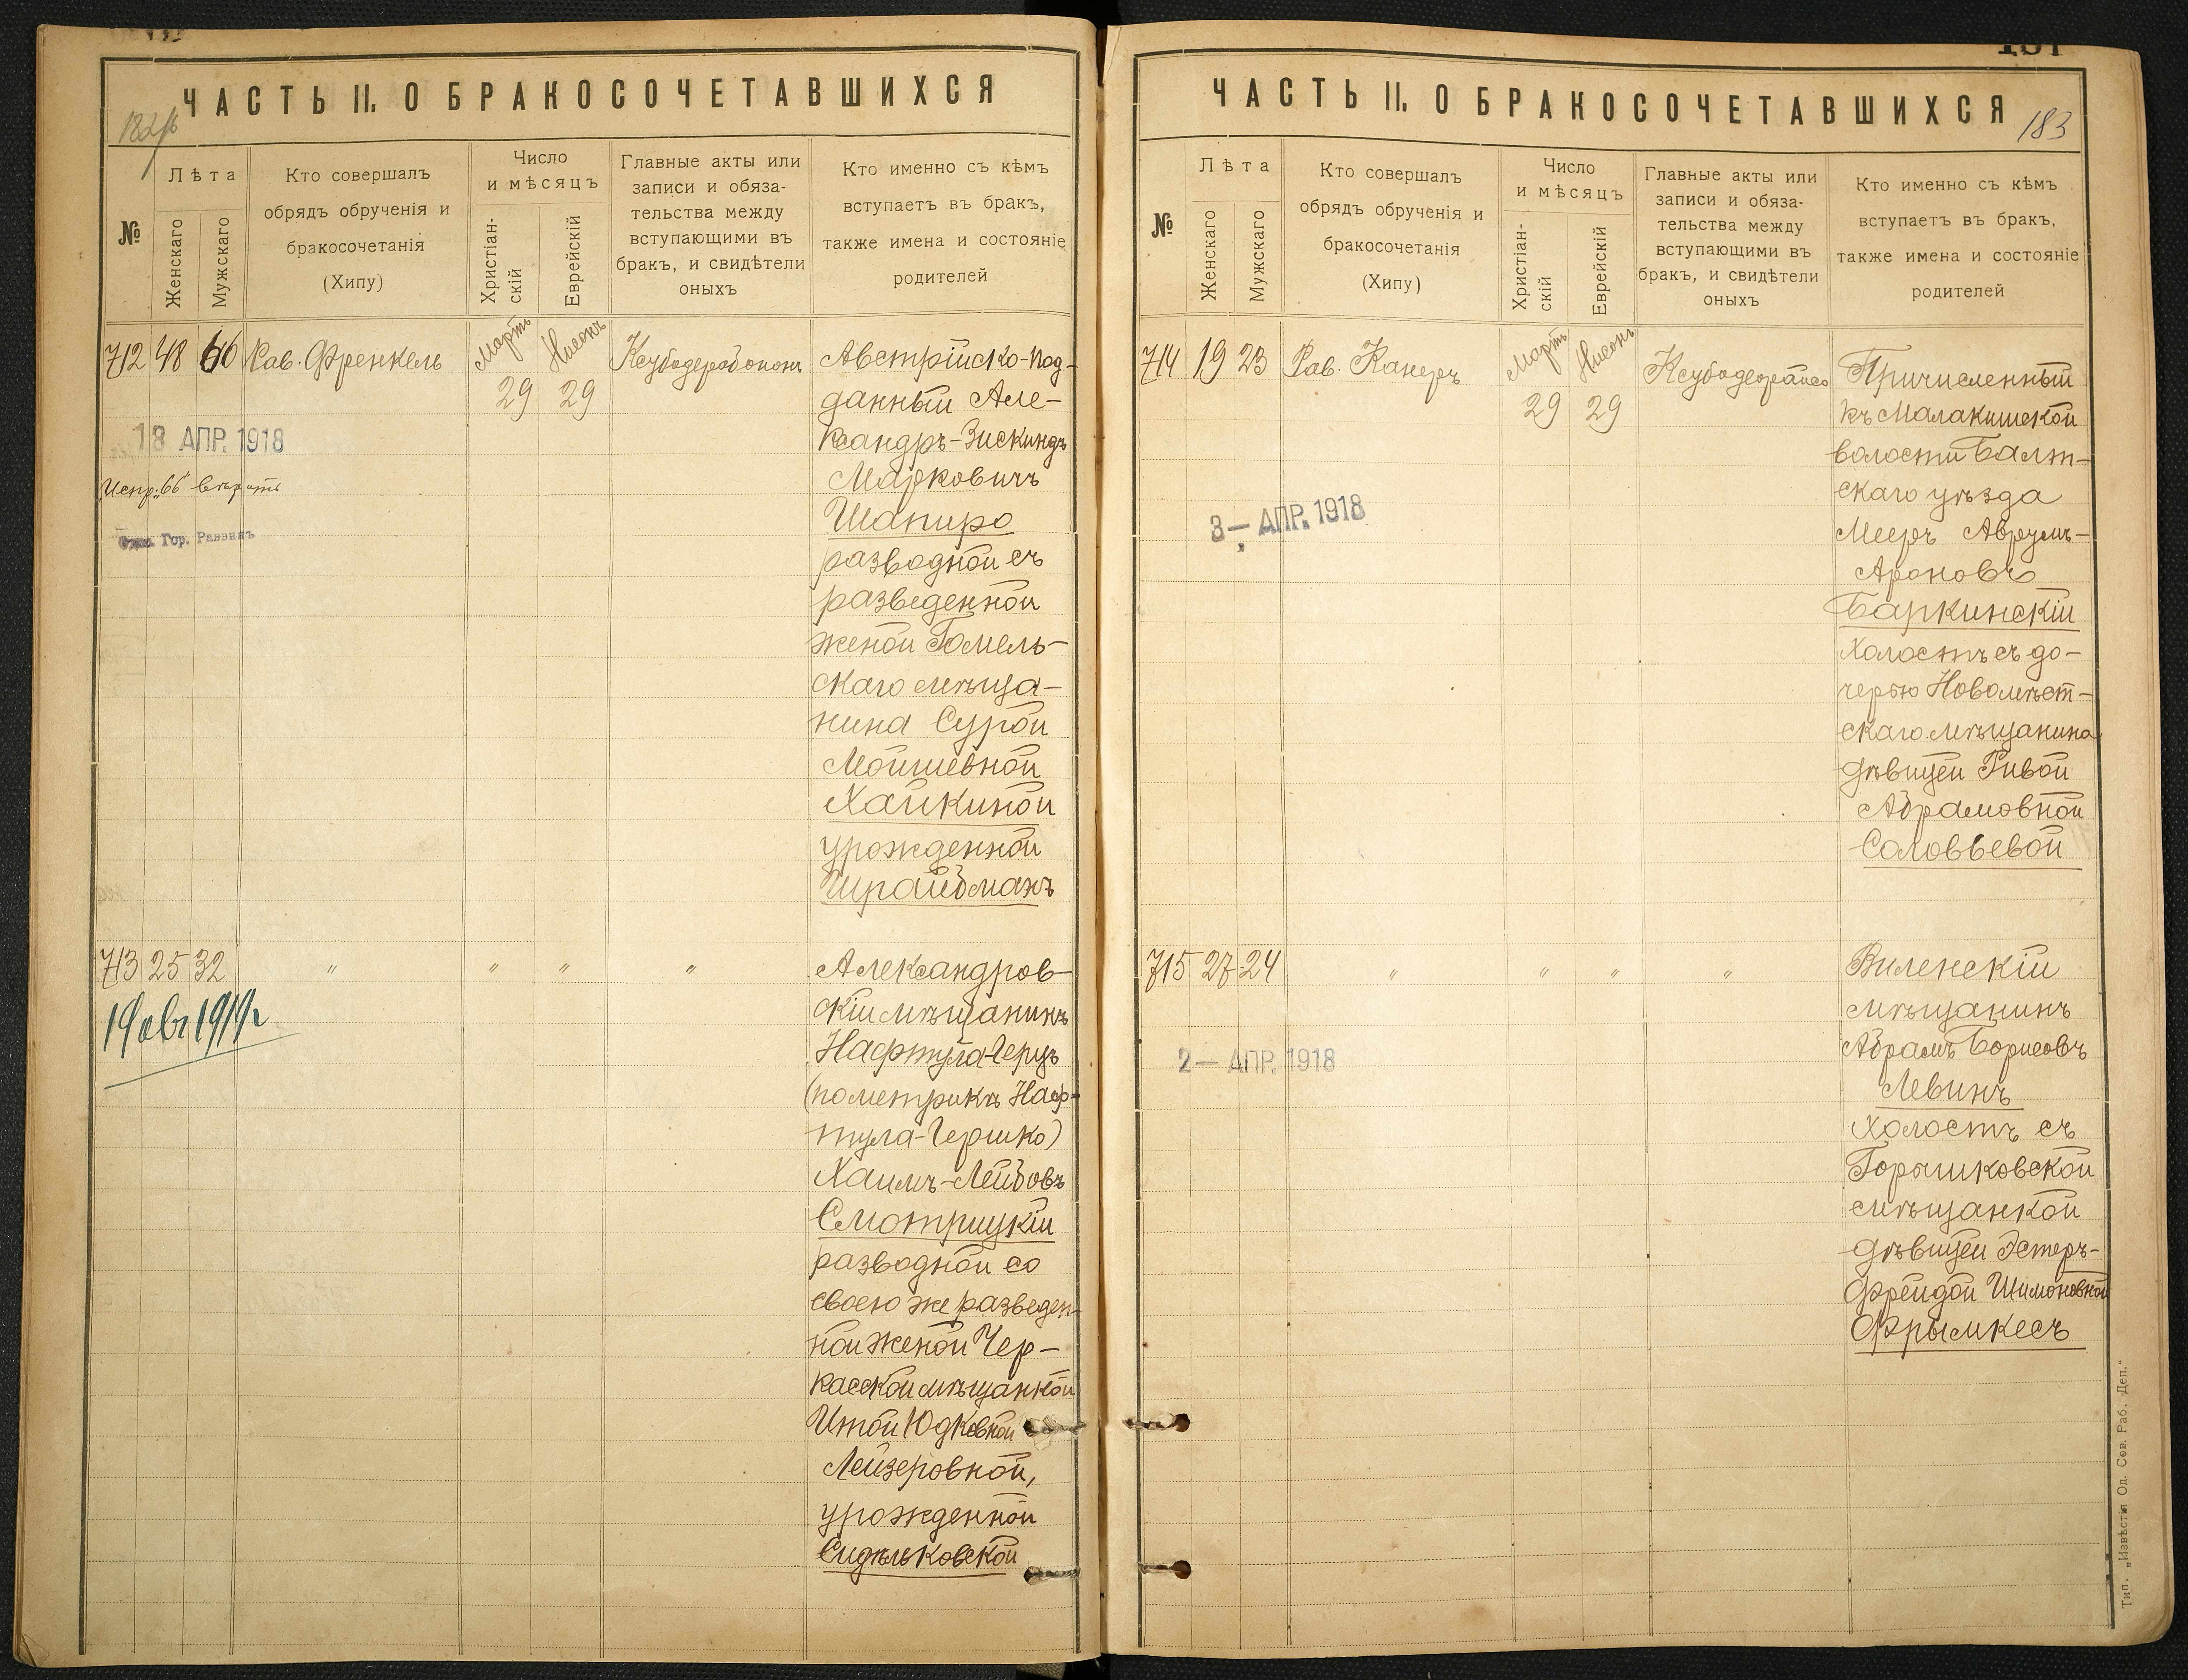 ЧАСТЬ II. О БРАКОСОЧЕТАВШИХСЯ
№
Лѣта
Женскаго
Мужскаго
Кто совершалъ
обрядъ обрученія и
бракосочетанія
(Хипу)
Число
и мѣсяцъ
Христіан-
скій
Еврейскій
Главные акты или
записи и обяза-
тельства между
вступающими въ
бракъ, и свидѣтели
оныхъ
Кто именно съ кѣмъ
вступаетъ въ бракъ,
также имена и состояніе
родителей
712 48 66 Рав. Френкель
Мартъ
29
Нисонъ
29
18 АПР. 1918
Испр. „66" вѣрить
Гор. Раввинъ
Австрійско-под-
данный Але-
ксандръ-Зискиндъ
Марковичъ
Шапиро
разводной съ
разведенной
женой Гомель-
скаго мѣща-
нина Сурой
Мойшевной
Хайкиной
урожденной
Шрайбманъ
713 25 32 " " " "
19 авг 1919г
Александров-
скій мѣщанинъ
Нафтула-Герцъ
(по метрикѣ Наф-
тула-Гершко)
Хаимъ-Лейбовъ
Смотрицкій
разводной со
своею же разведен-
ной женой Чер-
касской мѣщанкой
Итой Юдковной
Лейзеровной,
урожденной
Сидельковской
ЧАСТЬ II. О БРАКОСОЧЕТАВШИХСЯ
183
№
Лѣта
Женскаго
Мужскаго
Кто совершалъ
обрядъ обрученія и
бракосочетанія
(Хипу)
Число
и мѣсяцъ
Христіан-
скій
Еврейскій
Главные акты или
записи и обяза-
тельства между
вступающими въ
бракъ, и свидѣтели
оныхъ
Кто именно съ кѣмъ
вступаетъ въ бракъ,
также имена и состояніе
родителей
714 19 23 Рав. Канеръ
Мартъ
29
Нисонъ
29
3 — АПР. 1918
Причисленный
къ Малакишской
волости Балт-
скаго уѣзда
Мееръ Аврумъ-
Ароновъ
Баркинскій
холостъ съ до-
черью Новомѣст-
скаго мѣщанина
дѣвицей Ривой
Абрамовной
Соловьевой
715 27 24 " " " "
2 — АПР. 1918
Виленскій
мѣщанинъ
Абрамъ Борисовъ
Левинъ
холостъ съ
Горышковской
мѣщанкой
дѣвицей Эстеръ-
Фрейдой Шимоновной
Фрымкесъ
Тип. „Извѣстія Од. Сов. Раб. Деп."